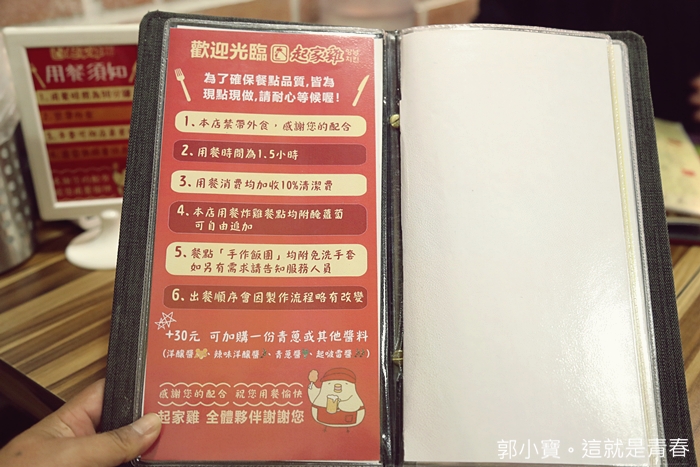 歡迎光臨 起家雞
為了確保餐點品質,皆為
現點現做,請耐心等候喔!
1、本店禁帶外食,感謝您的配合
2、用餐時間為1.5小時
3、用餐消費均加收10%清潔費
4、本店用餐炸雞餐點均附醃蘿蔔
可自由追加
5、餐點「手作飯團」均附免洗手套
如另有需求請告知服務人員
6、出餐順序會因製作流程略有改變
+30元 可加購一份青蔥或其他醬料
(洋釀醬、辣味洋釀醬、青蔥醬、起啵雷醬)
感謝您的配合 祝您用餐愉快
起家雞 全體夥伴謝謝您
用餐須知
郭小寶。這就是青春